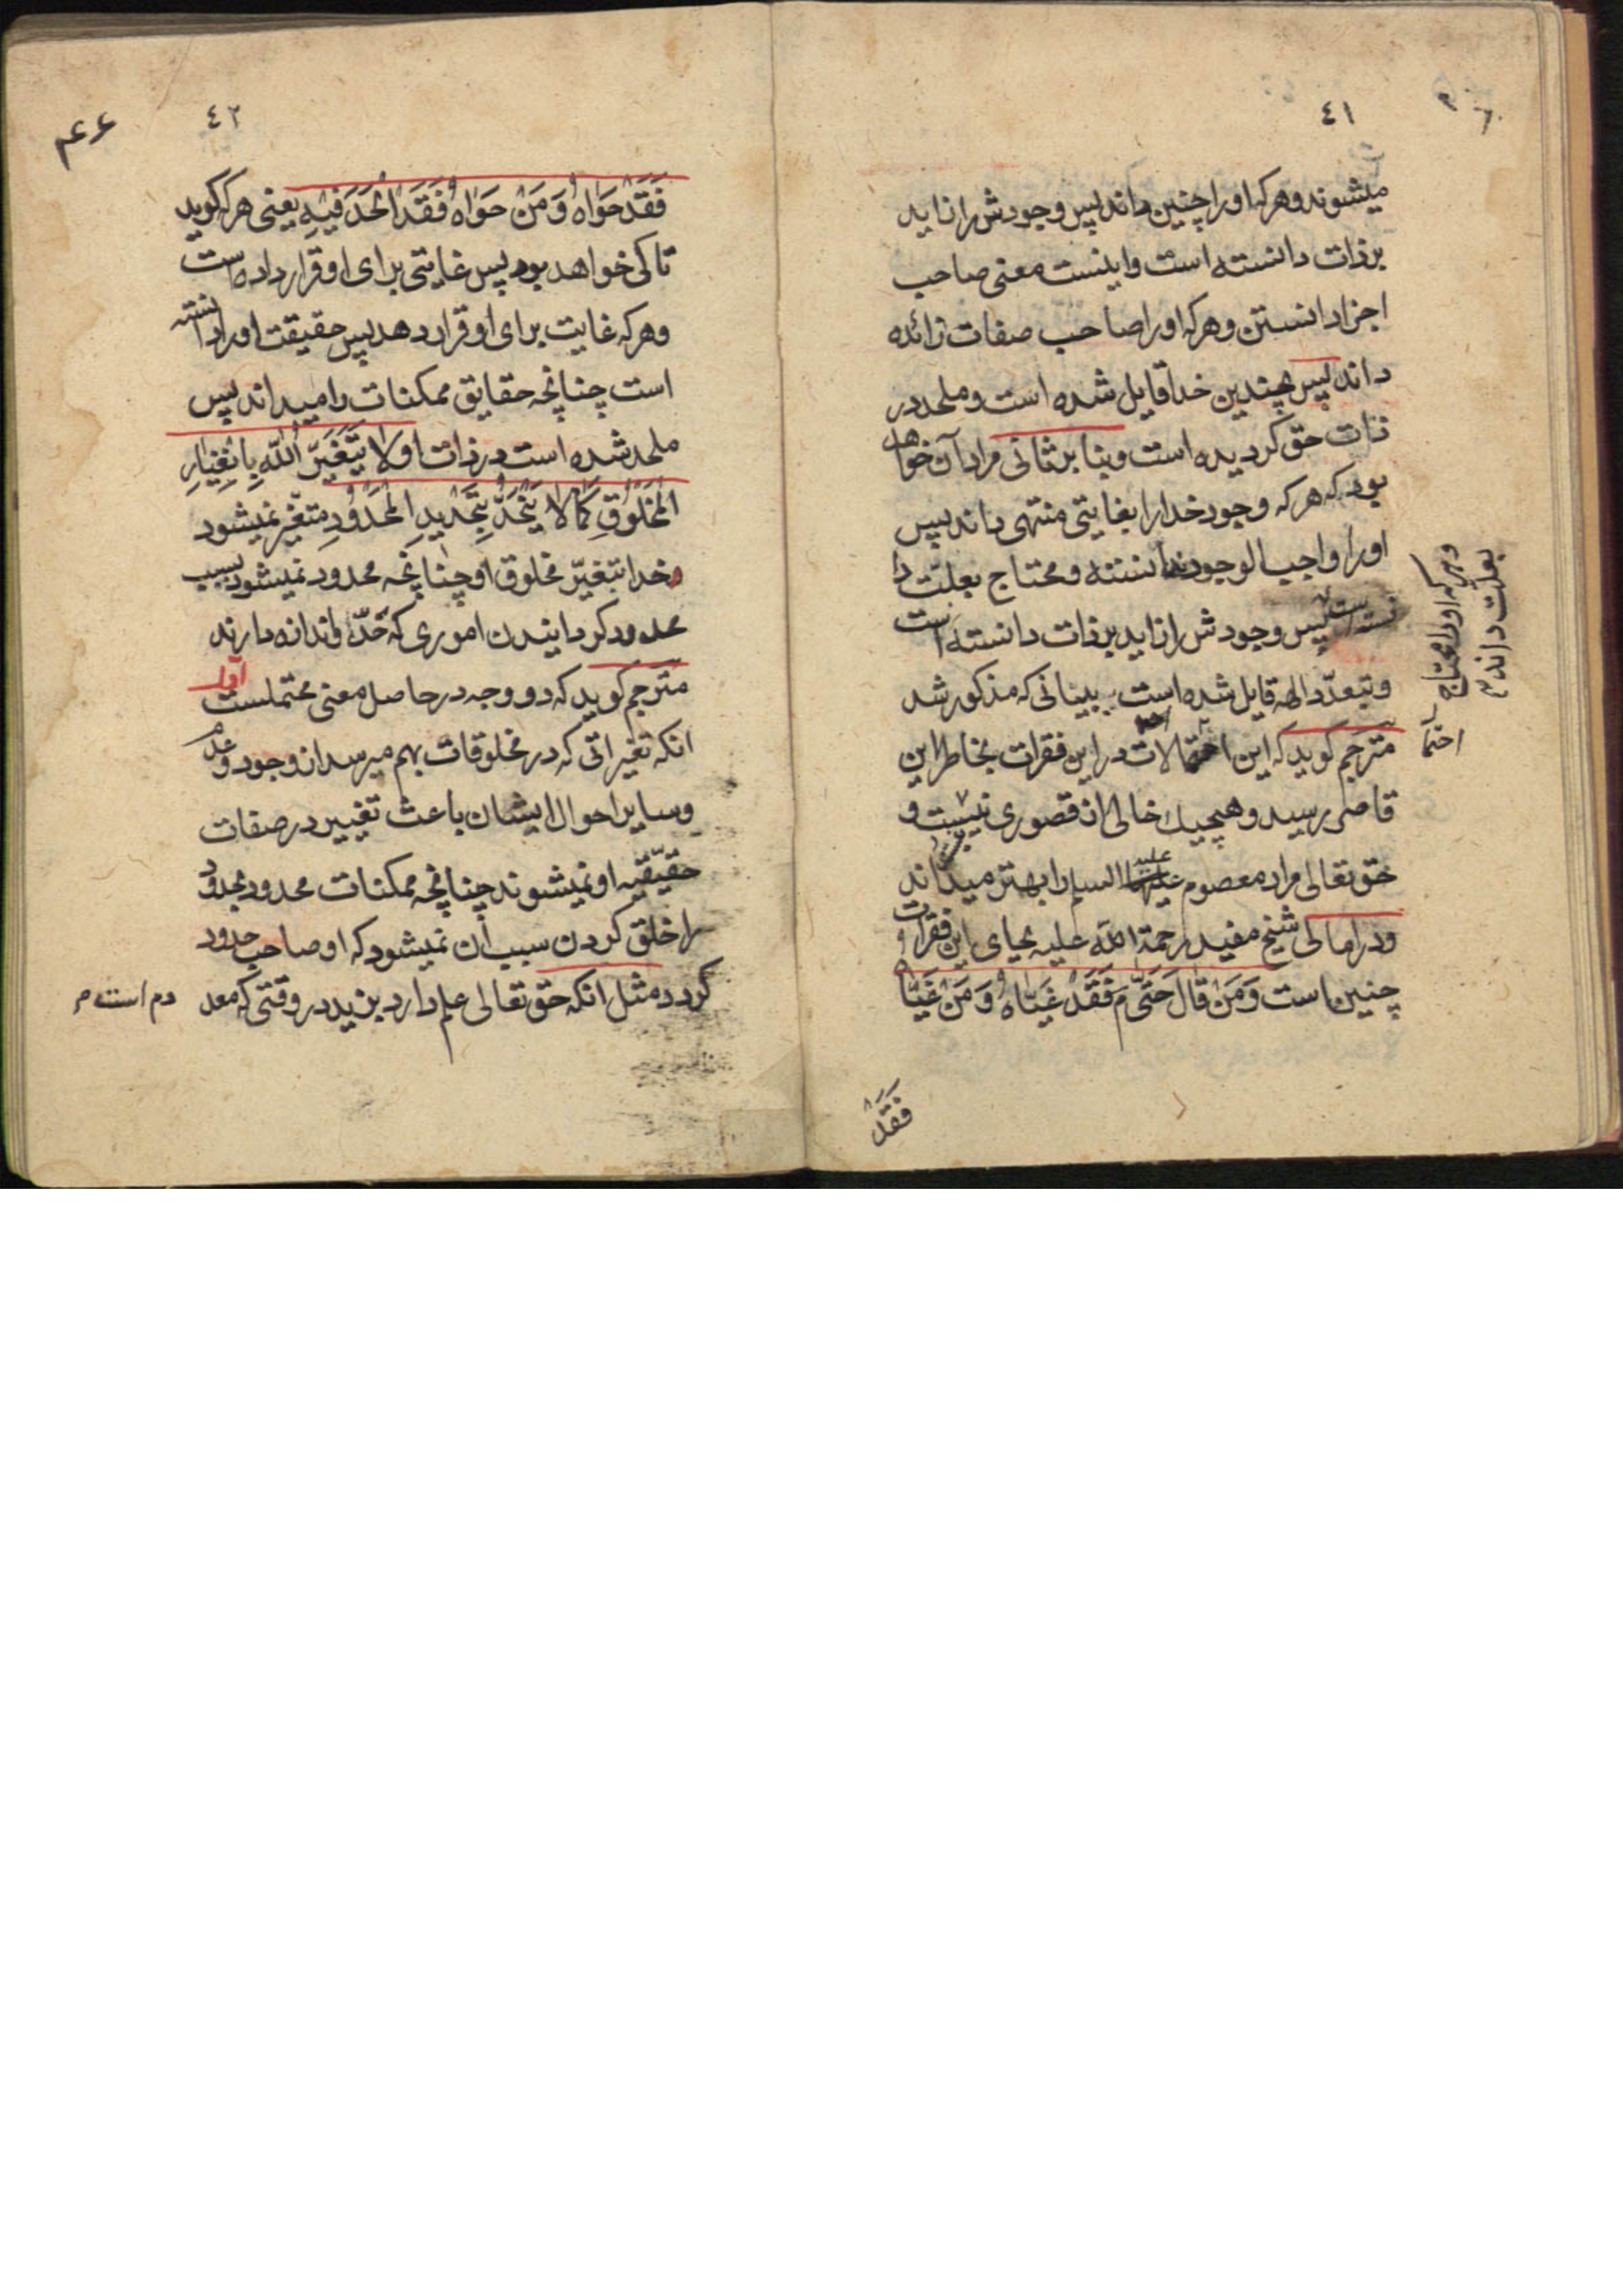 ٤١
میشوند و هرکه او را چنین داند پس وجودش را زاید
بر ذات دانسته است و اینست معنی صاحب
اجزا دانستن و هرکه او را صاحب صفات زائده
داند پس بچندین خدا قایل شده است و ملحد در
ذات حق کردیده است و بنا بر ثانی مراد آن خواهد
بود که هرکه وجود خدا را بغایتی منتهی داند پس
او را واجب الوجود ندانسته و محتاج بعلّت دا
نسته است پس وجودش را زاید بر ذات دانسته است
و بتعدّد الهه قایل شده است ببیانی که مذکور شد
مترجم کوید که این احتمالات در این فقرات بخاطر این
قاصر رسید و هیچیك خالی از قصوری نیست و
حق تعالی مراد معصوم علیه السلم را بهتر میداند
و در امالی شیخ مفید رحمة الله علیه بجای این فقرات
چنین است وَمَنْ قالَ حَتّیٰ مَ فَقَدْ غَیّاهُ وَمَنْ غَیّاهُ
فَقَدْ
و هرکه او را محتاج
بعلت داند م
احتما
٤٢
فَقَدْ حَوَاهُ وَمَنْ حَوَاهُ فَقَدْ اَلْحَدَ فیهِ یعنی هرکه کوید
تا کی خواهد بود پس غایتی برای او قرار داده است
و هرکه غایت برای او قرار دهد پس حقیقت او را دانسته
است چنانچه حقایق ممکنات را میداند پس
ملحد شده است در ذات او لا یَتَغَیَّرُ اللهُ بِاتَغْییارِ
الْمَخْلُوقِ کَمَا لا یَتَحَدَّدُ بِتَحْدیدِ الْمَحْدُودِ متغیّر نمیشود
خدا بتغیّر مخلوق او چنانچه محدود نمیشود بسبب
محدود کردانیدن اموری که حدّ و اندازه دارند
مترجم کوید که دو وجه در حاصل معنی محتملست اول
انکه تغیراتی که در مخلوقات بهم میرسد از وجود و عدم
و سایر احوال ایشان باعث تغییر در صفات
حقیقیّه او نمیشوند چنانچه ممکنات محدود بحدود
را خلق کردن سبب آن نمیشود که او صاحب حدود
کردد مثل انکه حق تعالی علم دارد بزید در وقتی که معد
دم است م